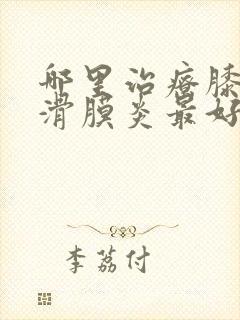 哪里治瘩膝
滑膜炎最好
李荔付